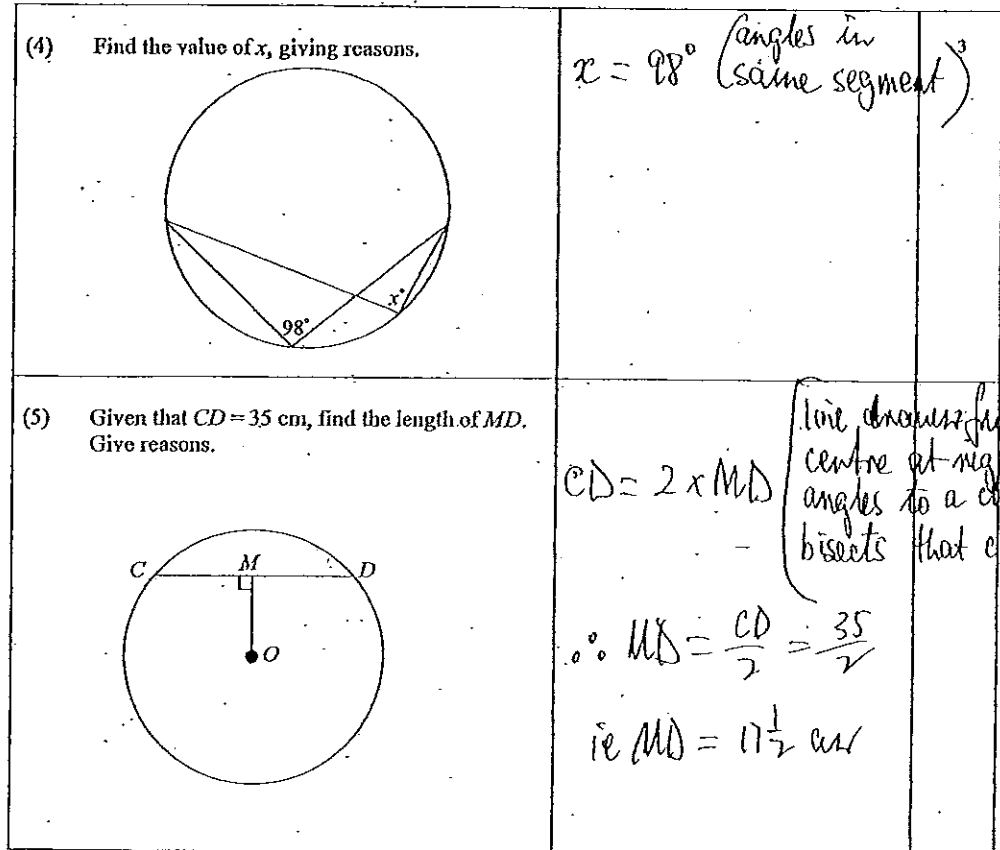 (4) Find the value of x, giving reasons.
98°
x°
x = 98° (angles in
same segment)
3
(5) Given that CD = 35 cm, find the length of MD.
Give reasons.
C M D
O
CD = 2 x MD
line drawn
centre at
angles to a
bisects that
∴ MD = CD/2 = 35/2
ie MD = 17 1/2 cm